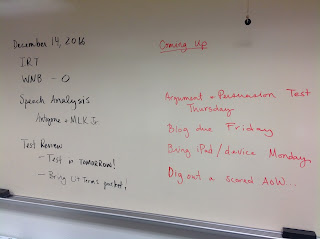 December 14, 2016
IRT
WNB - O
Speech Analysis
Antigone + MLK Jr
Test Review
- Test is TOMORROW!
- Bring Lit Terms packet!
Coming Up
Argument + Persuasion Test
Thursday
Blog due Friday
Bring iPad/device Monday
Dig out a scored AoW...